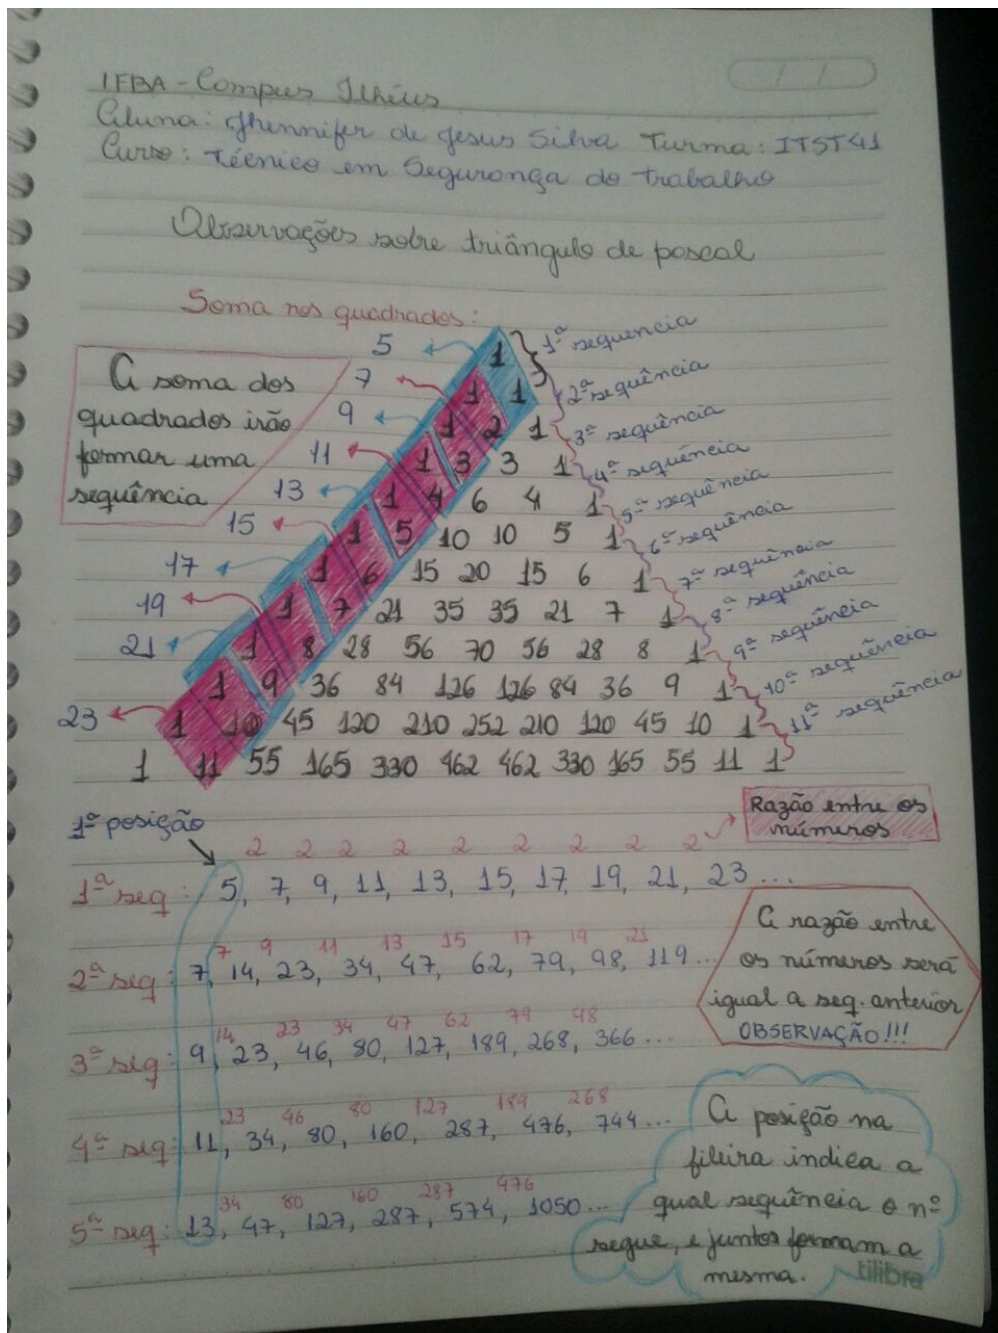 IFBA - Campus Ilhéus
Aluna: Jhennifer de Jesus Silva Turma: ITST41
Curso: Técnico em Segurança do trabalho
Observações sobre triângulo de pascal
Soma nos quadrados:
A soma dos
quadrados irão
formar uma
sequência
5
7
9
11
13
15
17
19
21
23
1
1 1
1 2 1
1 3 3 1
1 4 6 4 1
1 5 10 10 5 1
1 6 15 20 15 6 1
1 7 21 35 35 21 7 1
1 8 28 56 70 56 28 8 1
1 9 36 84 126 126 84 36 9 1
1 10 45 120 210 252 210 120 45 10 1
1 11 55 165 330 462 462 330 165 55 11 1
1ª sequencia
2ª sequência
3ª sequência
4ª sequência
5ª sequência
6ª sequência
7ª sequência
8ª sequência
9ª sequência
10ª sequência
11ª sequência
1ª posição
Razão entre os
números
2 2 2 2 2 2 2 2 2
1ª seq: 5, 7, 9, 11, 13, 15, 17, 19, 21, 23...
7 9 11 13 15 17 19 21
2ª seq: 7, 14, 23, 34, 47, 62, 79, 98, 119...
14 23 34 47 62 79 98
3ª seq: 9, 23, 46, 80, 127, 189, 268, 366...
23 46 80 127 189 268
4ª seq: 11, 34, 80, 160, 287, 476, 744...
34 80 160 287 476
5ª seq: 13, 47, 127, 287, 574, 1050...
A razão entre
os números será
igual a seq. anterior
OBSERVAÇÃO!!!
A posição na
fileira indica a
qual sequência o nº
segue, e juntos formam a
mesma.
tilibra